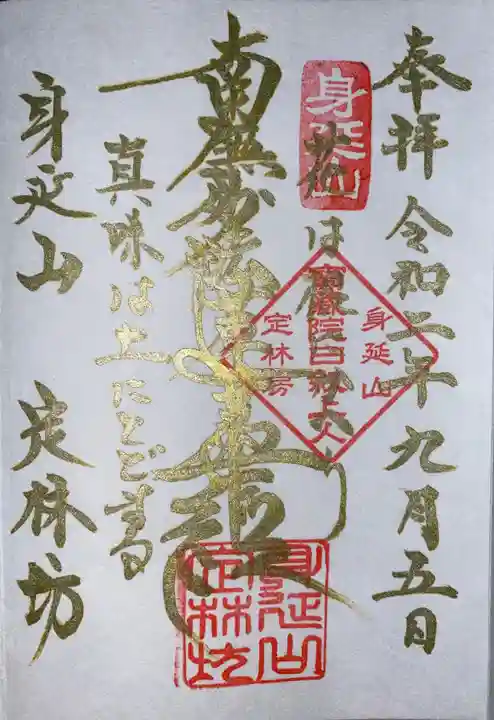 奉拝 令和二年九月五日
身延山
花は
南無妙法蓮華経
真味は土にとどまる
身延山 定林坊
身延山
定林房
身延山
定林坊